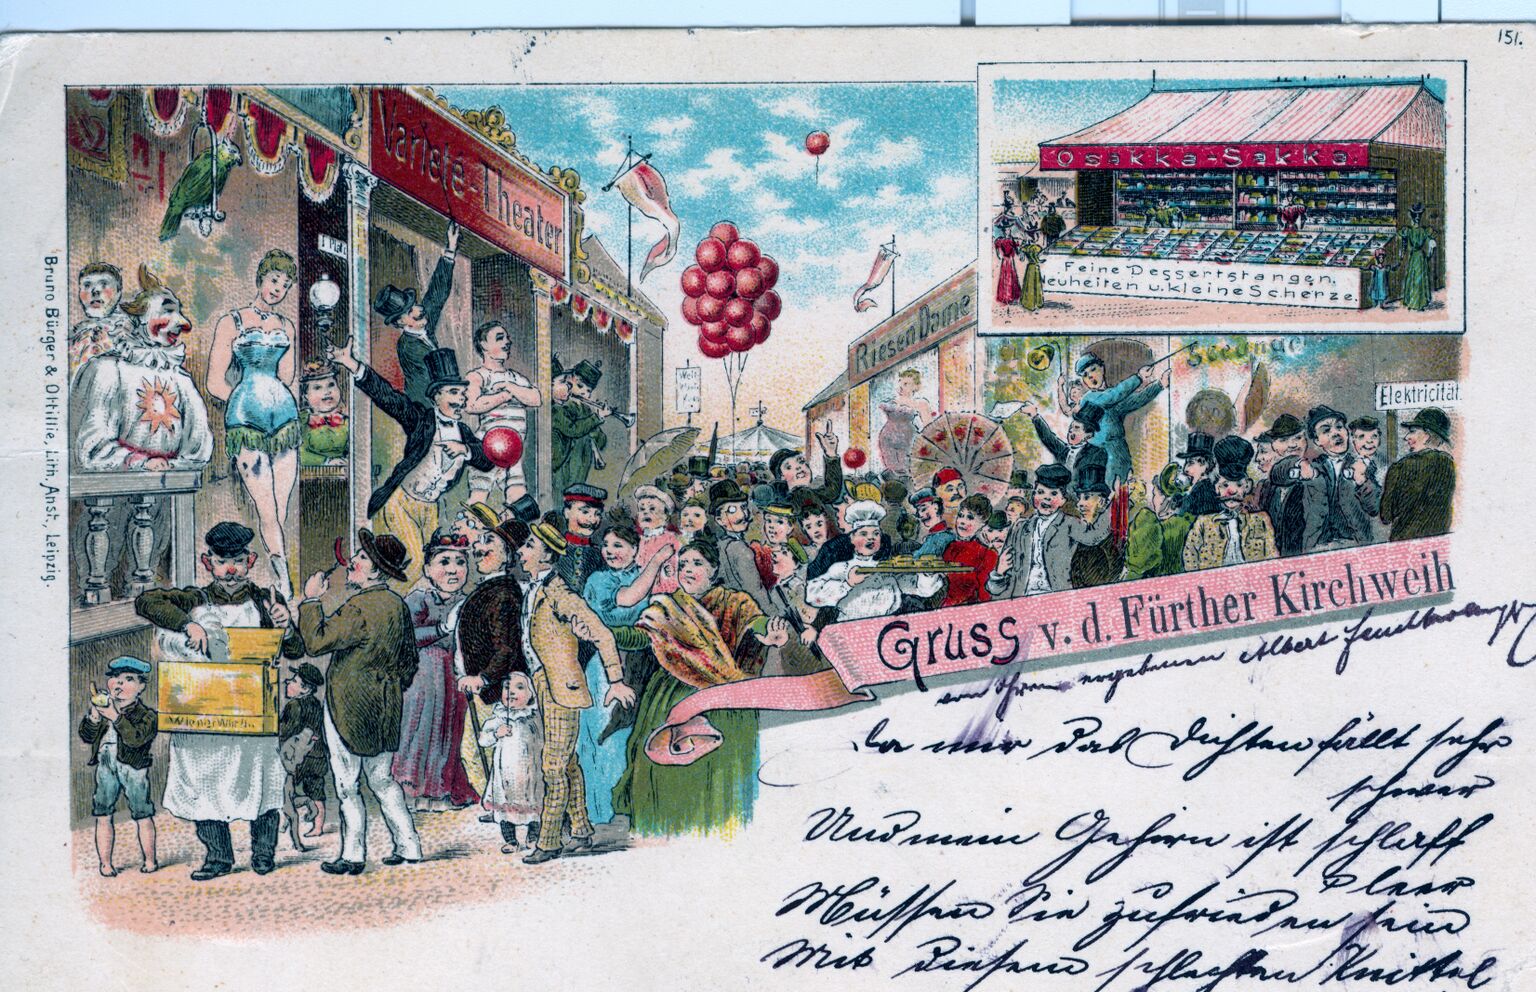 151.
Varieté-Theater
Osakka-Sakka.
Feine Dessertstangen.
euheiten u. kleine Scherze.
Riesen Dame
Elektricität.
Wiener Würst.
Bruno Bürger & Ottillie, Lith. Anst., Leipzig.
Gruss v. d. Fürther Kirchweih
von Ihrem ergebenen Albert
Da mir das Dichten fällt sehr
schwer
Und mein Gehirn ist schlaff
& leer
Müssen Sie zufrieden sein
Mit diesem schlechten Knittel